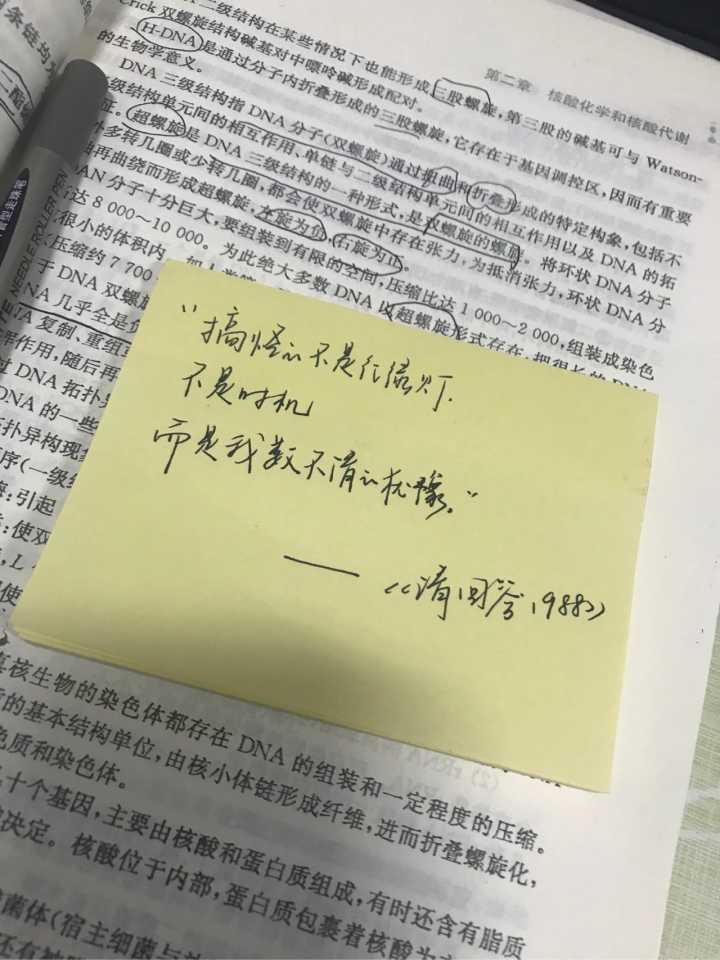 第二章 核酸化学和核酸代谢
二级结构在某些情况下也能形成三股螺旋，第三股的碱基可与 Watson-
Crick 双螺旋结构碱基对中嘌呤碱形成配对。
H-DNA 是通过分子内折叠形成的三股螺旋，它存在于基因调控区，因而有重要
的生物学意义。
DNA 三级结构指 DNA 分子(双螺旋)通过扭曲和折叠形成的特定构象，包括不
级结构单元间的相互作用、单链与二级结构单元间的相互作用以及 DNA 的拓
征。超螺旋是 DNA 三级结构的一种形式，是双螺旋的螺旋。将环状 DNA 分子
多转几圈或少转几圈，都会使双螺旋中存在张力，为抵消张力，环状 DNA 分
曲再曲绕而形成超螺旋，左旋为负，右旋为正。
分子十分巨大，要组装到有限的空间，压缩比达 1 000～2 000，组装成染色
达 8 000～10 000。为此绝大多数 DNA 以超螺旋形式存在
很小的体积内
压缩约 7 700
于 DNA 双螺旋
几乎全是负
复制、重组
作用，随后再
DNA 拓扑
DNA 的一些
扑异构现象
序(一级结
引起
使双
"搞怪的不是红绿灯.
不是时机
而是我数不清的犹豫。"
——《请回答1988》
真核生物的染色体都存在 DNA 的组装和一定程度的压缩。
的基本结构单位，由核小体链形成纤维，进而折叠螺旋化，
色质和染色体。
十个基因，主要由核酸和蛋白质组成，有时还含有脂质
决定。核酸位于内部，蛋白质包裹着核酸
菌体(宿主细菌与
NEEDLE ROLLER PEN